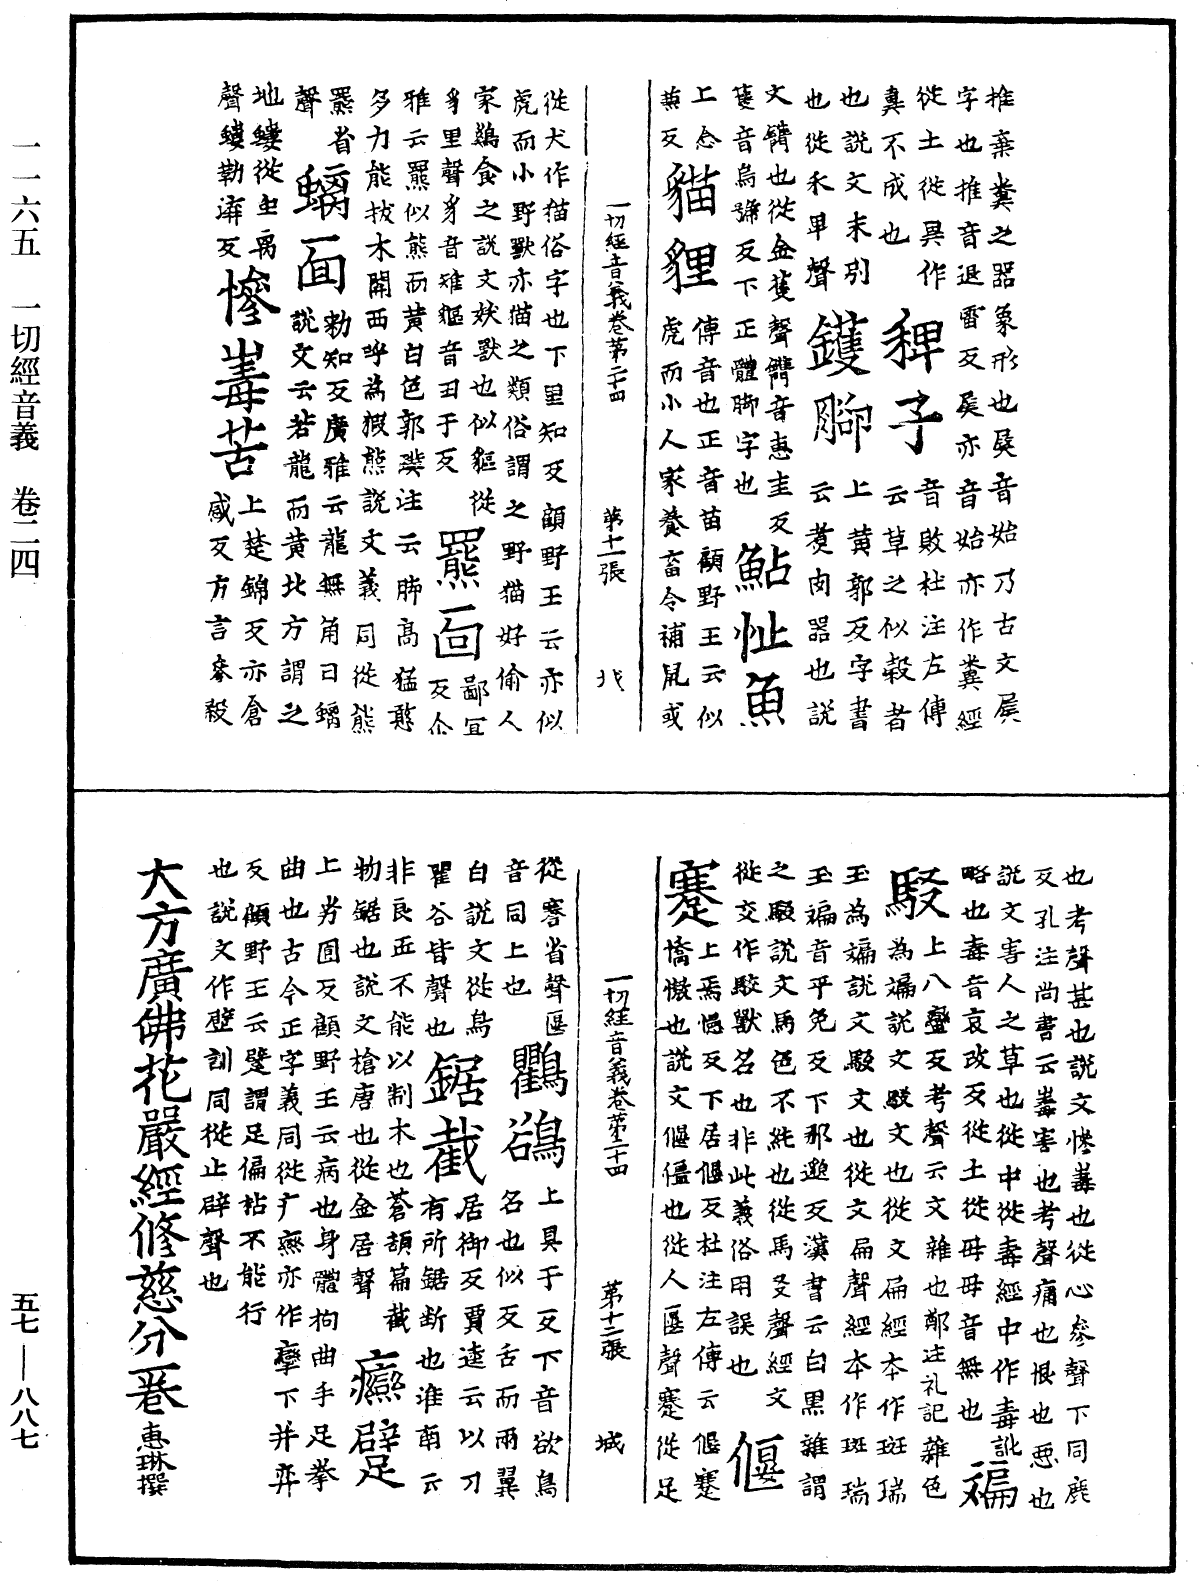 一一六五　一切經音義　卷二四
推棄糞之器象形也㞒音始乃古文㞒
字也推音退雷反㞒亦音始亦作糞經
從土從異作
糞不成也
稗子
音敗杜注左傳
云草之似穀者
也說文禾别
也從禾卑聲
鑊脚
上黄郭反字書
云煑肉器也說
文鐫也從金蒦聲鐫音惠圭反
蒦音烏虢反下正體脚字也
鮎𩶱魚
上念
兼反
貓狸
傳音也正音苗顧野王云似
虎而小人家養畜令捕鼠或
一切經音義卷第二十四　第十一張　戎
從犬作猫俗字也下里知反顧野王云亦似
虎而小野獸亦猫之類俗謂之野猫好偷人
家鷄食之說文妖獸也似貙從
豸里聲豸音雉貙音丑于反
羆面
鄙冝
反介
雅云羆似熊而黄白色郭璞注云肺髙猛憨
多力能拔木關西呼為猳熊說文義同從熊
罷省
聲
螭面
勑知反廣雅云龍無角曰螭
說文云若龍而黄北方謂之
地螻從虫离
聲螻勒溝反
慘毒苦
上楚錦反亦倉
感反方言㕘殺
也考聲甚也說文慘毒也從心參聲下同鹿
反孔注尚書云毒害也考聲痛也恨也惡也
說文害人之草也從屮從毒經中作毒訛
略也毒音哀改反從土從毋毋音無也
褊
駮
上八蠻反考聲云文雜也鄭注礼記雜色
為斒說文駮文也從文扁經本作斑瑞
玉為斒說文駮文也從文扁聲經本作斑瑞
玉褊音乎免反下那邈反漢書云白黒雜謂
之駮說文馬色不純也從馬爻聲經文
從交作駮獸名也非此義俗用誤也
偃
蹇
上焉憶反下居偃反杜注左傳云偃蹇
憍慠也說文偃僵也從人匽聲蹇從足
一切經音義卷第二十四　第十二張　城
從寒省聲匽
音同上也
鸜鵒
上具于反下音欲鳥
名也似反舌而兩翼
白說文從鳥
瞿谷皆聲也
鋸截
居御反賈逵云以刀
有所鋸断也淮南云
非良匠不能以制木也蒼頡篇截
物鋸也說文槍唐也從金居聲
癵躄
上劣圓反顧野王云病也身體拘曲手足拳
曲也古今正字義同從疒䜌亦作攣下并弈
反顧野王云躄謂足偏枯不能行
也說文作壁訓同從止辟聲也
大方廣佛花嚴經修慈分一巻　惠琳撰
五七——八八七